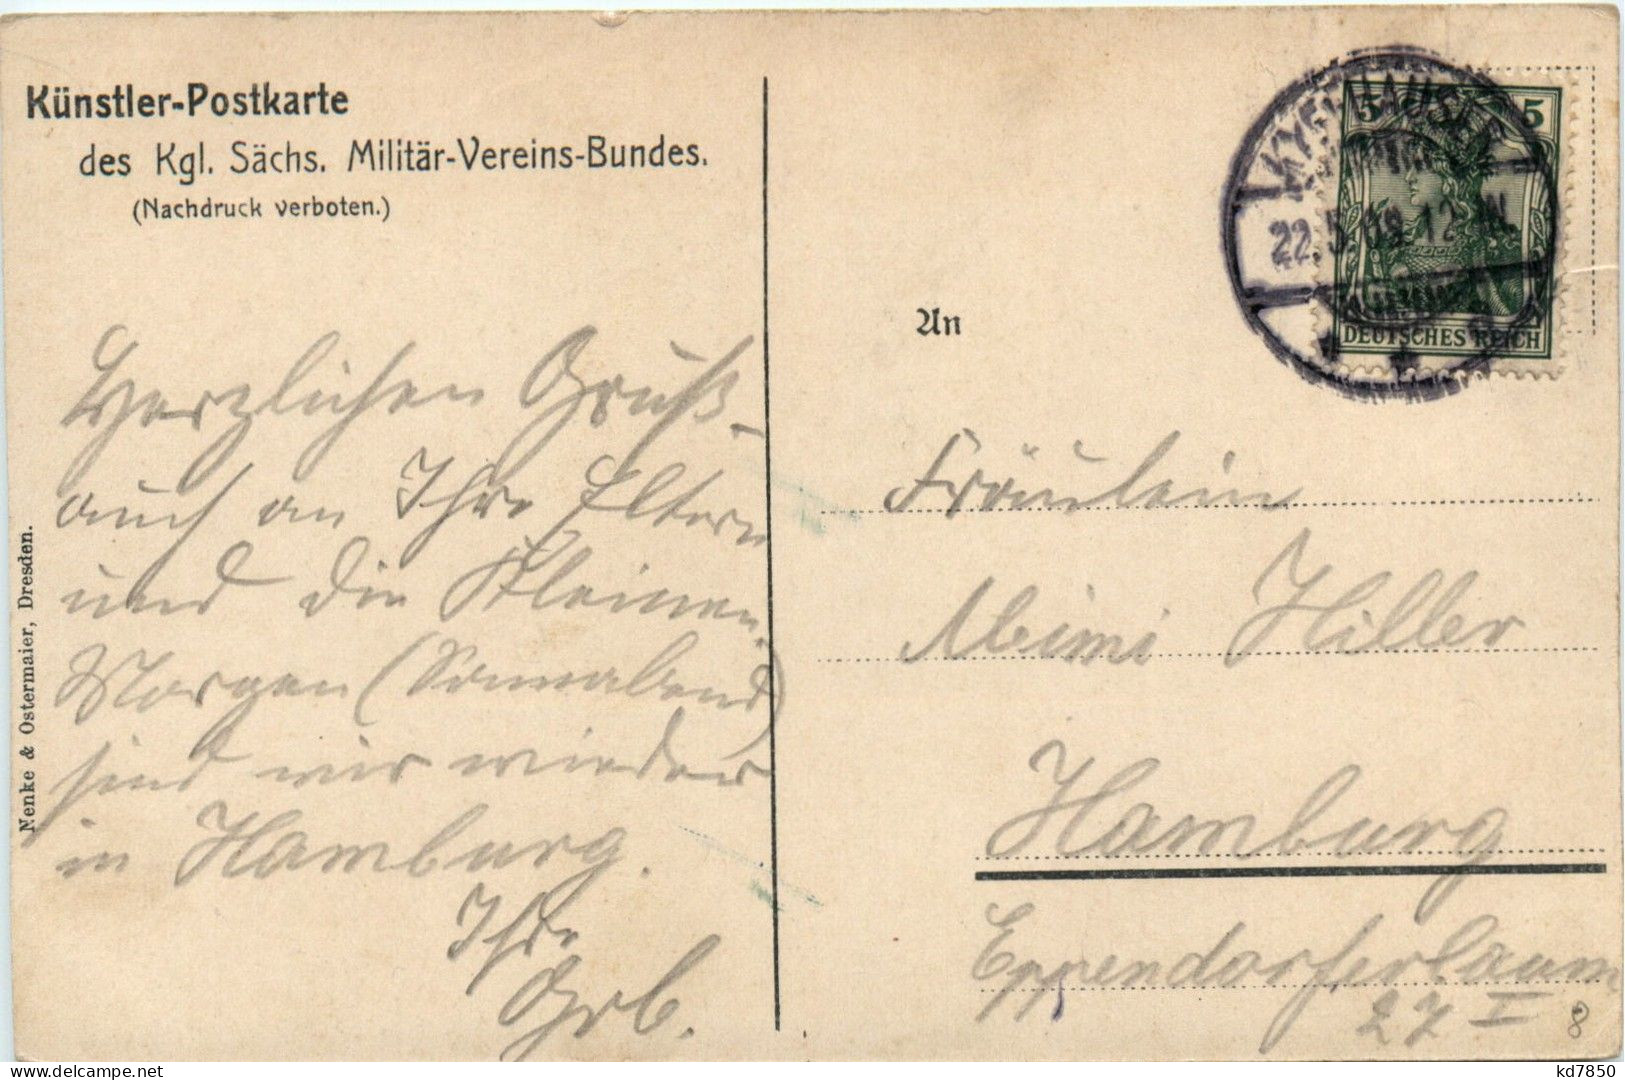 Künstler-Postkarte
des Kgl. Sächs. Militär-Vereins-Bundes.
(Nachdruck verboten.)
Nenke & Ostermaier, Dresden.
Herzlichen Gruß
auch an Ihre Eltern
und die Kleinen.
Morgen (Sonnabend)
sind wir wieder
in Hamburg.
Ihr
An
5 5
DEUTSCHES REICH
KYFFHÄUSER
22.5.09.12-1N.
Fräulein
Mimi Hiller
Hamburg
Eppendorferbaum
27 I
8
kd7850